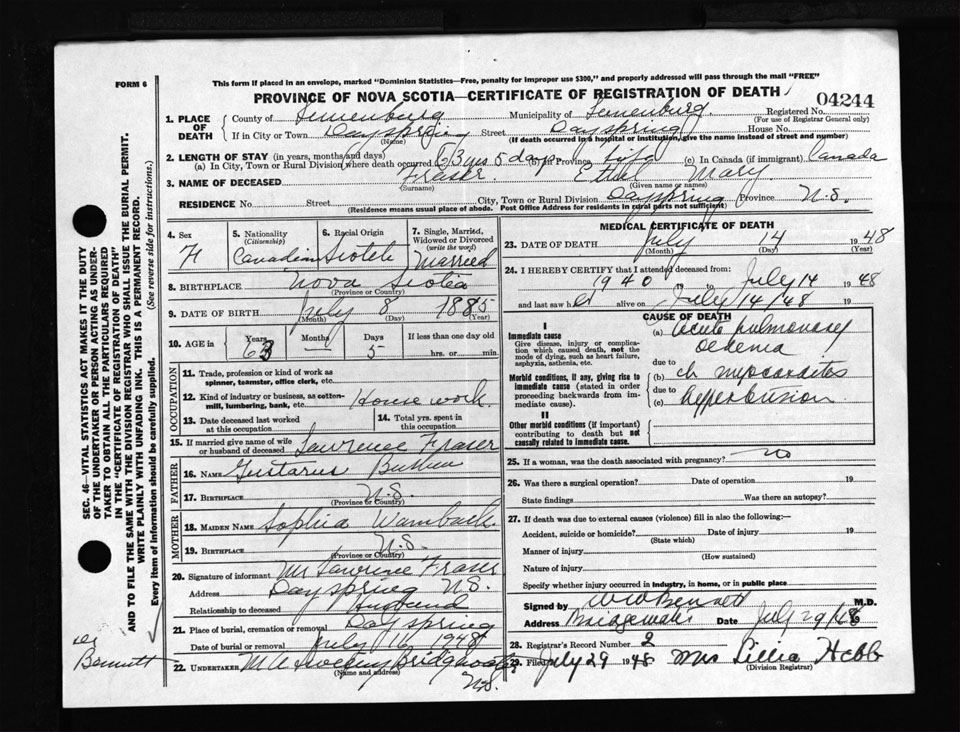 This form if placed in an envelope, marked "Dominion Statistics—Free, penalty for improper use $300," and properly addressed will pass through the mail "FREE"
FORM 6
PROVINCE OF NOVA SCOTIA—CERTIFICATE OF REGISTRATION OF DEATH
04244
1. PLACE OF DEATH
County of Lunenburg Municipality of Lunenburg Registered No.
(For use of Registrar General only)
If in City or Town Dayspring Street Dayspring House No.
(Name) (If death occurred in a hospital or institution, give the name instead of street and number)
2. LENGTH OF STAY (in years, months and days)
(a) In City, Town or Rural Division where death occurred 63 yrs 5 days Province Life (c) In Canada (if immigrant) Canada
3. NAME OF DECEASED Fraser Ethel Mary
(Surname) (Given name or names)
RESIDENCE No. Street City, Town or Rural Division Dayspring Province N.S.
(Residence means usual place of abode. Post Office Address for residents in rural parts not sufficient)
4. Sex
5. Nationality (Citizenship) Canadian
6. Racial Origin
7. Single, Married, Widowed or Divorced (write the word) Married
8. BIRTHPLACE Nova Scotia
(Province or Country)
9. DATE OF BIRTH July 8 1885
(Month) (Day) (Year)
10. AGE in Years 63 Months Days 5 If less than one day old hrs. or min.
OCCUPATION
11. Trade, profession or kind of work as spinner, teamster, office clerk, etc.
12. Kind of industry or business, as cotton-mill, lumbering, bank, etc. House work
13. Date deceased last worked at this occupation
14. Total yrs. spent in this occupation
15. If married give name of wife or husband of deceased Lawrence Fraser
FATHER
16. NAME Gustavus
17. BIRTHPLACE N.S.
(Province or Country)
MOTHER
18. MAIDEN NAME Sophia Wamback
19. BIRTHPLACE N.S.
(Province or Country)
20. Signature of informant Mr Lawrence Fraser
Address Dayspring N.S.
Relationship to deceased Husband
21. Place of burial, cremation or removal Dayspring
Date of burial or removal July 16 1948
22. UNDERTAKER Bridgewater N.S.
(Name and address)
MEDICAL CERTIFICATE OF DEATH
23. DATE OF DEATH July 14 1948
(Month) (Day) (Year)
24. I HEREBY CERTIFY that I attended deceased from:
1940 to July 14 1948
and last saw her alive on July 14/48 19
CAUSE OF DEATH
I
Immediate cause
Give disease, injury or complication which caused death, not the mode of dying, such as heart failure, asphyxia, asthenia, etc.
(a) Acute pulmonary oedema
due to
Morbid conditions, if any, giving rise to immediate cause (stated in order proceeding backwards from immediate cause).
(b) ch myocarditis
due to
(c) hypertension
II
Other morbid conditions (if important) contributing to death but not causally related to immediate cause.
25. If a woman, was the death associated with pregnancy? no
26. Was there a surgical operation? Date of operation 19
State findings Was there an autopsy?
27. If death was due to external causes (violence) fill in also the following:—
Accident, suicide or homicide? Date of injury 19
(State which)
Manner of injury
(How sustained)
Nature of injury
Specify whether injury occurred in industry, in home, or in public place
Signed by W W Bennett M.D.
Address Bridgewater Date July 29/48 19
28. Registrar's Record Number 2
29. Filed July 29 1948 Mrs Lillia Hebb
(Division Registrar)
SEC. 46—VITAL STATISTICS ACT MAKES IT THE DUTY
OF THE UNDERTAKER OR PERSON ACTING AS UNDER-
TAKER TO OBTAIN ALL THE PARTICULARS REQUIRED
IN THE "CERTIFICATE OF REGISTRATION OF DEATH"
AND TO FILE THE SAME WITH THE DIVISION REGISTRAR WHO SHALL ISSUE THE BURIAL PERMIT.
WRITE PLAINLY WITH UNFADING INK. THIS IS A PERMANENT RECORD.
Every item of Information should be carefully supplied. (See reverse side for instructions.)
Dr Bennett